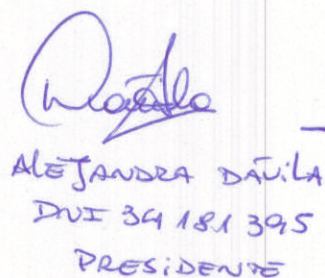 ALEJANDRA DÁVILA
DNI 34 181 395
PRESIDENTE